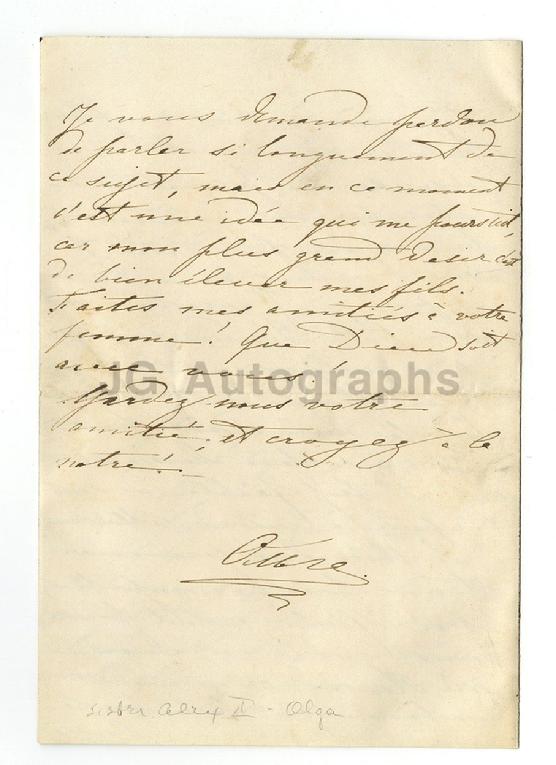 Je vous demande pardon
de parler si longuement de
ce sujet, mais en ce moment
c'est une idée qui me poursuit,
car mon plus grand desir c'est
de bien élever mes fils.
Faites mes amitiés à votre
femme! Que Dieu soit
avec vous!
JG Autographs
Gardez nous votre
amitié, et croyez à la
notre!
sister Alex II - Olga